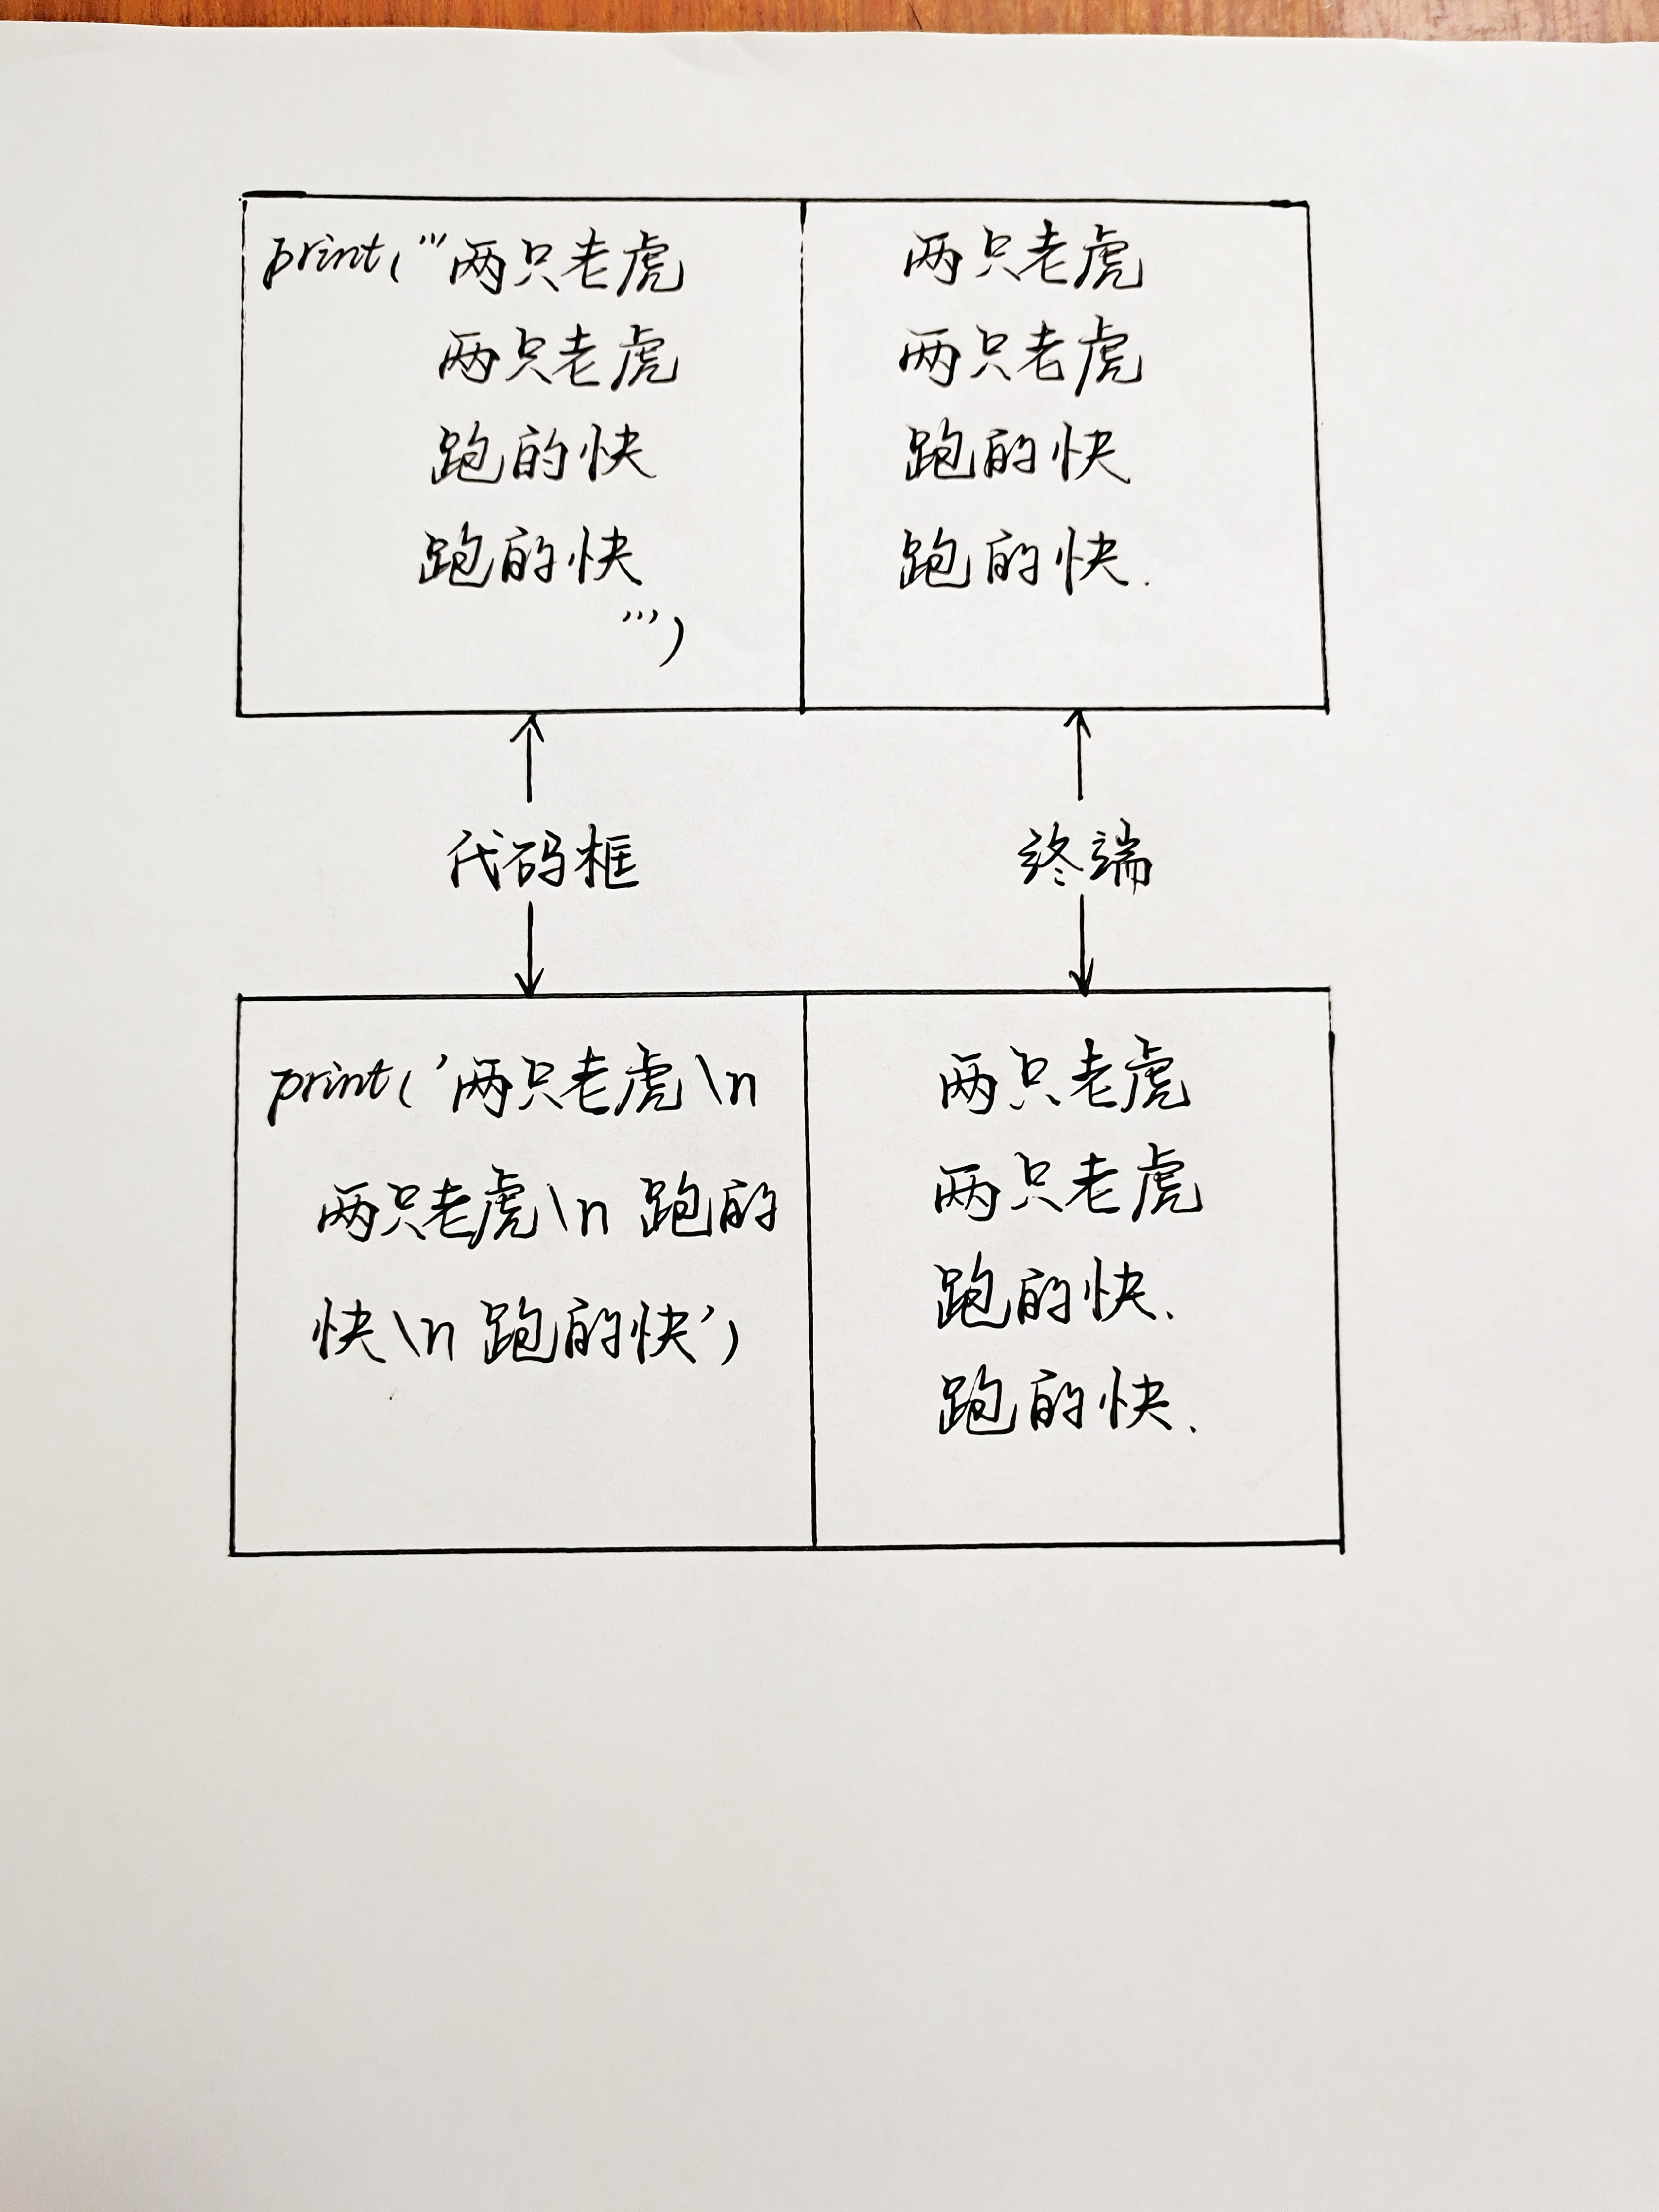 print('''两只老虎
两只老虎
跑的快
跑的快
''')
两只老虎
两只老虎
跑的快
跑的快.
代码框
终端
print('两只老虎\n
两只老虎\n 跑的
快\n 跑的快')
两只老虎
两只老虎
跑的快、
跑的快、